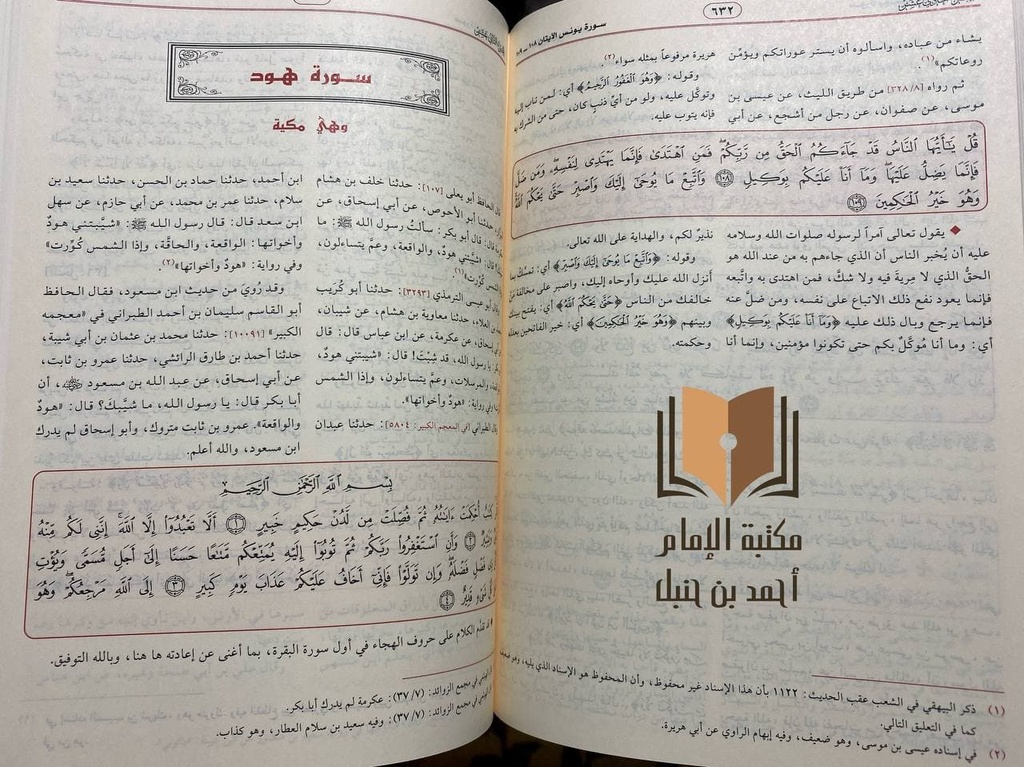 ٦٣٢
سورة يونس الآيتان ١٠٨ -
يشاء من عباده، واسألوه أن يستر عوراتكم ويؤمّن
روعاتكم»(١).
ثم رواه [٣٢٨/٨] من طريق الليث، عن عيسى بن
موسى، عن صفوان، عن رجل من أشجع، عن أبي
هريرة مرفوعاً بمثله سواء(٢).
وقوله: ﴿وَهُوَ الْغَفُورُ الرَّحِيمُ﴾ أي: لمن تاب إليه
وتوكّل عليه، ولو من أيّ ذنبٍ كان، حتى من الشرك به
فإنه يتوب عليه.
قُلْ يَٰٓأَيُّهَا ٱلنَّاسُ قَدْ جَآءَكُمُ ٱلْحَقُّ مِن رَّبِّكُمْ ۖ فَمَنِ ٱهْتَدَىٰ فَإِنَّمَا يَهْتَدِى لِنَفْسِهِۦ ۖ وَمَن ضَلَّ
فَإِنَّمَا يَضِلُّ عَلَيْهَا ۖ وَمَآ أَنَا۠ عَلَيْكُم بِوَكِيلٍ ١٠٨ وَٱتَّبِعْ مَا يُوحَىٰٓ إِلَيْكَ وَٱصْبِرْ حَتَّىٰ يَحْكُمَ ٱللَّهُ
وَهُوَ خَيْرُ ٱلْحَٰكِمِينَ ١٠٩
◆ يقول تعالى آمراً لرسوله صلوات الله وسلامه
عليه أن يُخبر الناس أن الذي جاءهم به من عند الله هو
الحقُّ الذي لا مِريةَ فيه ولا شكَّ، فمن اهتدى به واتَّبعه
فإنما يعود نفع ذلك الاتباع على نفسه، ومن ضلَّ عنه
فإنما يرجع وبال ذلك عليه ﴿وَمَا أَنَا عَلَيْكُم بِوَكِيلٍ﴾
أي: وما أنا مُوكَّلٌ بكم حتى تكونوا مؤمنين، وإنما أنا
نذيرٌ لكم، والهداية على الله تعالى.
وقوله: ﴿وَاتَّبِعْ مَا يُوحَى إِلَيْكَ وَاصْبِرْ﴾ أي: تمسَّك بما
أنزل الله عليك وأوحاه إليك، واصبر على مخالفة من
خالفك من الناس ﴿حَتَّى يَحْكُمَ اللَّهُ﴾ أي: يفتح بينك
وبينهم ﴿وَهُوَ خَيْرُ الْحَاكِمِينَ﴾ أي: خير الفاتحين بعدله
وحكمته.
مكتبة الإمام
أحمد بن حنبل
(١) ذكر البيهقي في الشعب عقب الحديث: ١١٢٢ بأن هذا الإسناد غير محفوظ، وأن المحفوظ هو الإسناد الذي يليه، وهو ضعيف
كما في التعليق التالي.
(٢) في إسناده عيسى بن موسى، وهو ضعيف، وفيه إبهام الراوي عن أبي هريرة.
سورة هود
وهي مكية
قال الحافظ أبو يعلى [١٠٧]: حدثنا خلف بن هشام
حدثنا أبو الأحوص، عن أبي إسحاق، عن
قال: قال أبو بكر: سألتُ رسول الله ﷺ: ما
قال: «شيَّبتني هودٌ، والواقعة، وعمَّ يتساءلون،
الشمس كُوِّرت»(١).
قال أبو عيسى الترمذي [٣٢٩٣]: حدثنا أبو كُرَيب
بن العلاء، حدثنا معاوية بن هشام، عن شيبان،
إسحاق، عن عكرمة، عن ابن عباس قال: قال
يا رسول الله، قد شِبْتَ! قال: «شيبتني هودٌ،
والمرسلات، وعمَّ يتساءلون، وإذا الشمس
وفي رواية: «هودٌ وأخواتها».
قال الطبراني [في المعجم الكبير: ٥٨٠٤]: حدثنا عبدان
ابن أحمد، حدثنا حماد بن الحسن، حدثنا سعيد بن
سلام، حدثنا عمر بن محمد، عن أبي حازم، عن سهل
ابن سعد قال: قال رسول الله ﷺ: «شيَّبتني هودٌ
وأخواتها: الواقعة، والحاقَّة، وإذا الشمس كُوِّرت»
وفي رواية: «هودٌ وأخواتها»(٢).
وقد رُويَ من حديث ابن مسعود، فقال الحافظ
أبو القاسم سليمان بن أحمد الطبراني في «معجمه
الكبير» [١٠٠٩١]: حدثنا محمد بن عثمان بن أبي شيبة،
حدثنا أحمد بن طارق الرائشي، حدثنا عمرو بن ثابت،
عن أبي إسحاق، عن عبد الله بن مسعود ﷺ، أن
أبا بكر قال: يا رسول الله، ما شيَّبك؟ قال: «هودٌ
والواقعة». عمرو بن ثابت متروك، وأبو إسحاق لم يدرك
ابن مسعود، والله أعلم.
بِسْمِ ٱللَّهِ ٱلرَّحْمَٰنِ ٱلرَّحِيمِ
كِتَٰبٌ أُحْكِمَتْ ءَايَٰتُهُۥ ثُمَّ فُصِّلَتْ مِن لَّدُنْ حَكِيمٍ خَبِيرٍ ١ أَلَّا تَعْبُدُوٓا۟ إِلَّا ٱللَّهَ ۚ إِنَّنِى لَكُم مِّنْهُ
٢ وَأَنِ ٱسْتَغْفِرُوا۟ رَبَّكُمْ ثُمَّ تُوبُوٓا۟ إِلَيْهِ يُمَتِّعْكُم مَّتَٰعًا حَسَنًا إِلَىٰٓ أَجَلٍ مُّسَمًّى وَيُؤْتِ
ذِى فَضْلٍ فَضْلَهُۥ ۖ وَإِن تَوَلَّوْا۟ فَإِنِّىٓ أَخَافُ عَلَيْكُمْ عَذَابَ يَوْمٍ كَبِيرٍ ٣ إِلَى ٱللَّهِ مَرْجِعُكُمْ ۖ وَهُوَ
شَىْءٍ قَدِيرٌ ٤
قد تقدَّم الكلام على حروف الهجاء في أول سورة البقرة، بما أغنى عن إعادته ها هنا، وبالله التوفيق.
في مجمع الزوائد: (٣٧/٧): عكرمة لم يدرك أبا بكر.
في مجمع الزوائد: (٣٧/٧): وفيه سعيد بن سلام العطار، وهو كذاب.